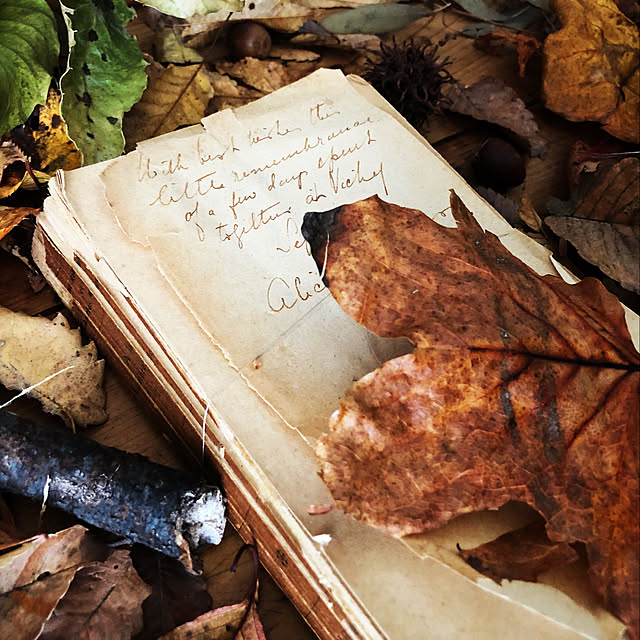 With best wishes this
little remembrance
of a few days spent
together in Vichy
Alic